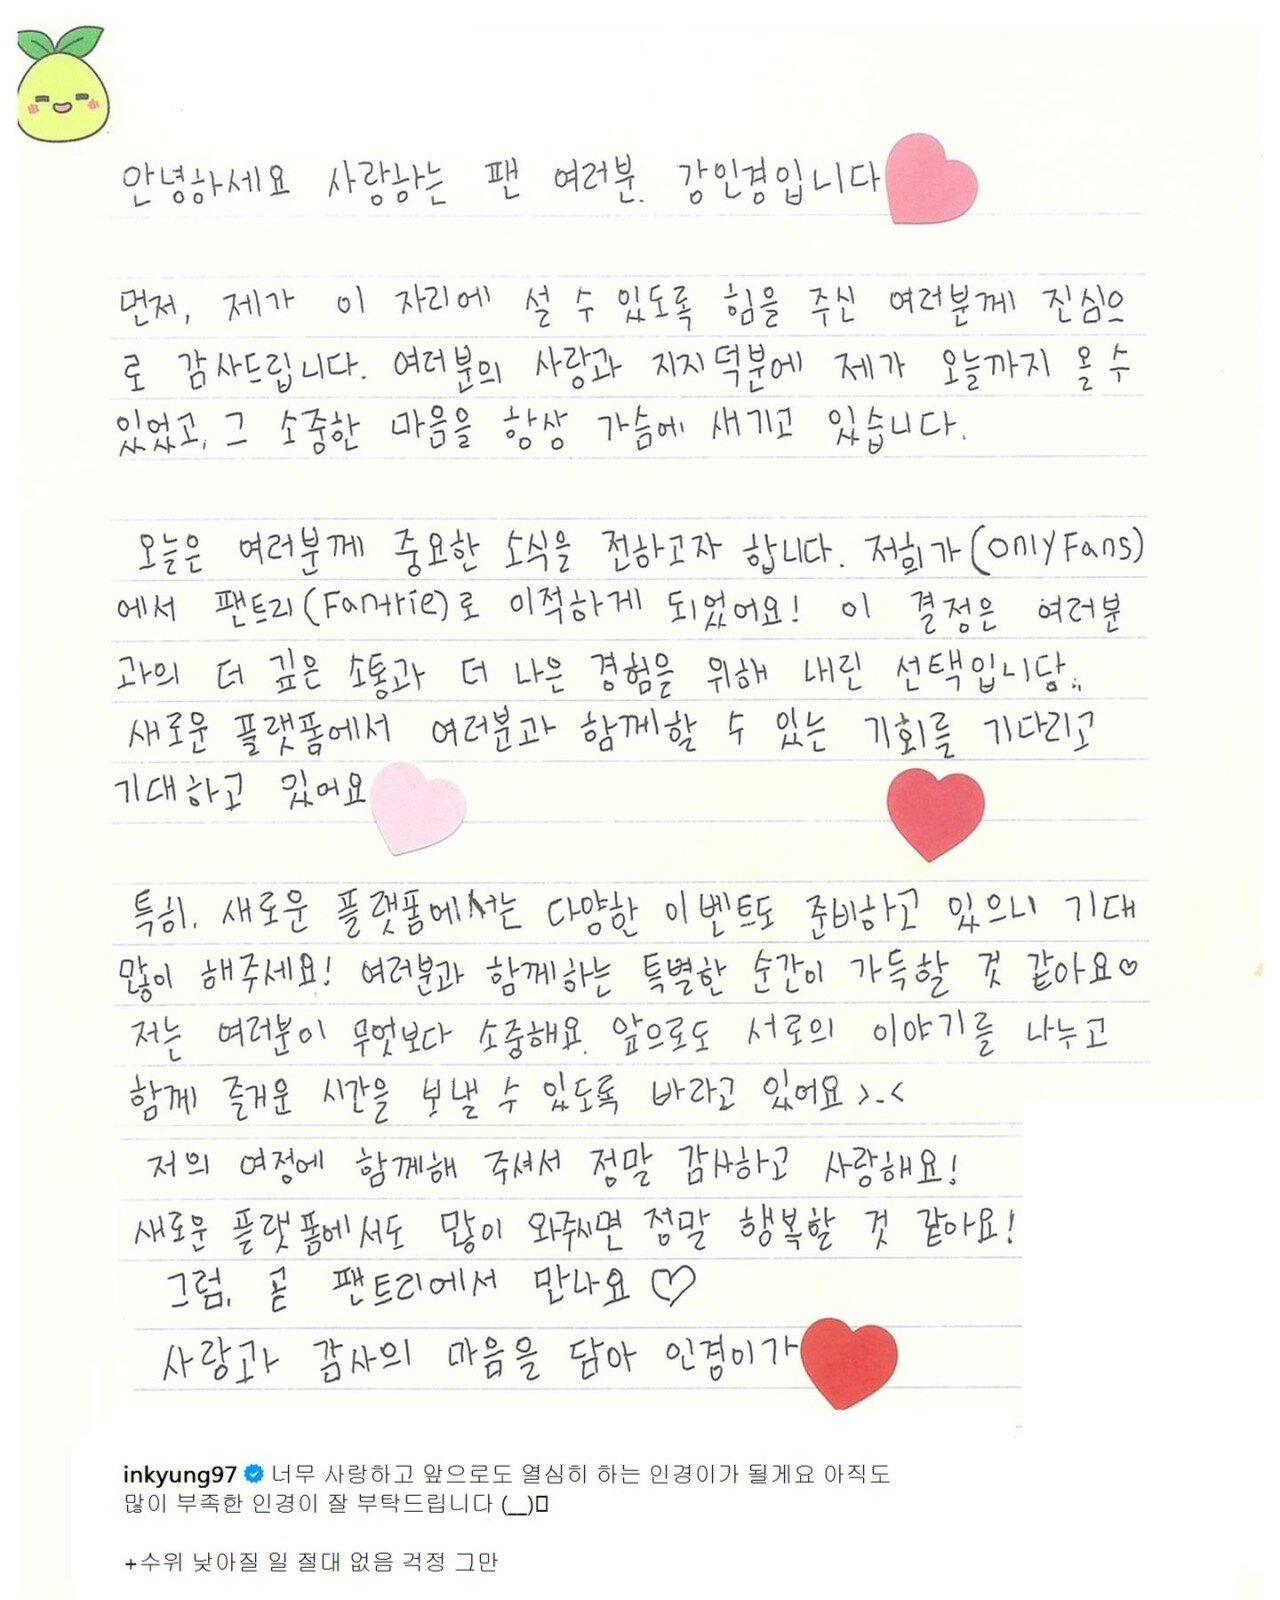 안녕하세요 사랑하는 팬 여러분. 강인경입니다
먼저, 제가 이 자리에 설 수 있도록 힘을 주신 여러분께 진심으
로 감사드립니다. 여러분의 사랑과 지지덕분에 제가 오늘까지 올 수
있었고, 그 소중한 마음을 항상 가슴에 새기고 있습니다.
오늘은 여러분께 중요한 소식을 전하고자 합니다. 저희가 (onlyFans)
에서 팬트리(Fantrie)로 이적하게 되었어요! 이 결정은 여러분
과의 더 깊은 소통과 더 나은 경험을 위해 내린 선택입니담..
새로운 플랫폼에서 여러분과 함께할 수 있는 기회를 기다리고
기대하고 있어요
특히, 새로운 플랫폼에서는 다양한 이벤트도 준비하고 있으니 기대
많이 해주세요! 여러분과 함께하는 특별한 순간이 가득할 것 같아요♡
저는 여러분이 무엇보다 소중해요. 앞으로도 서로의 이야기를 나누고
함께 즐거운 시간을 보낼 수 있도록 바라고 있어요 >.<
저의 여정에 함께해 주셔서 정말 감사하고 사랑해요!
새로운 플랫폼에서도 많이 와주시면 정말 행복할 것 같아요!
그럼, 곧 팬트리에서 만나요 ♡
사랑과 감사의 마음을 담아 인경이가
inkyung97 너무 사랑하고 앞으로도 열심히 하는 인경이가 될게요 아직도
많이 부족한 인경이 잘 부탁드립니다 (__)▯
+수위 낮아질 일 절대 없음 걱정 그만